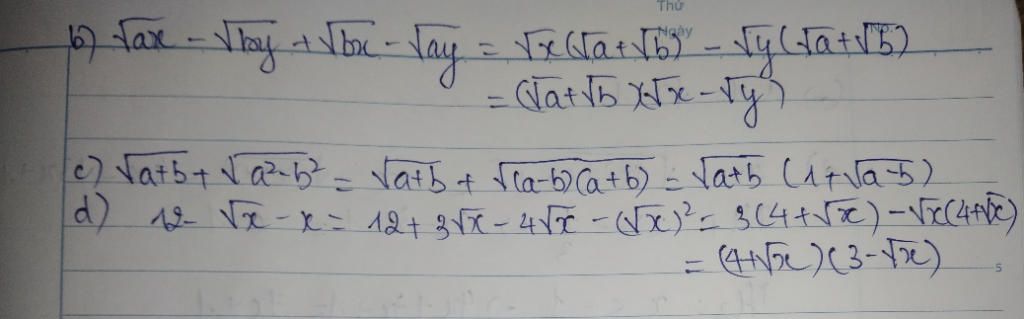 Thứ
Ngày
No.
b) √ax − √by + √bx − √ay = √x(√a+√b) − √y(√a+√b)
= (√a+√b)(√x−√y)
c) √(a+b) + √(a²−b²) = √(a+b) + √((a−b)(a+b)) = √(a+b) (1+√(a−b))
d) 12− √x − x = 12 + 3√x − 4√x − (√x)² = 3(4+√x) − √x(4+√x)
= (4+√x)(3−√x)
5